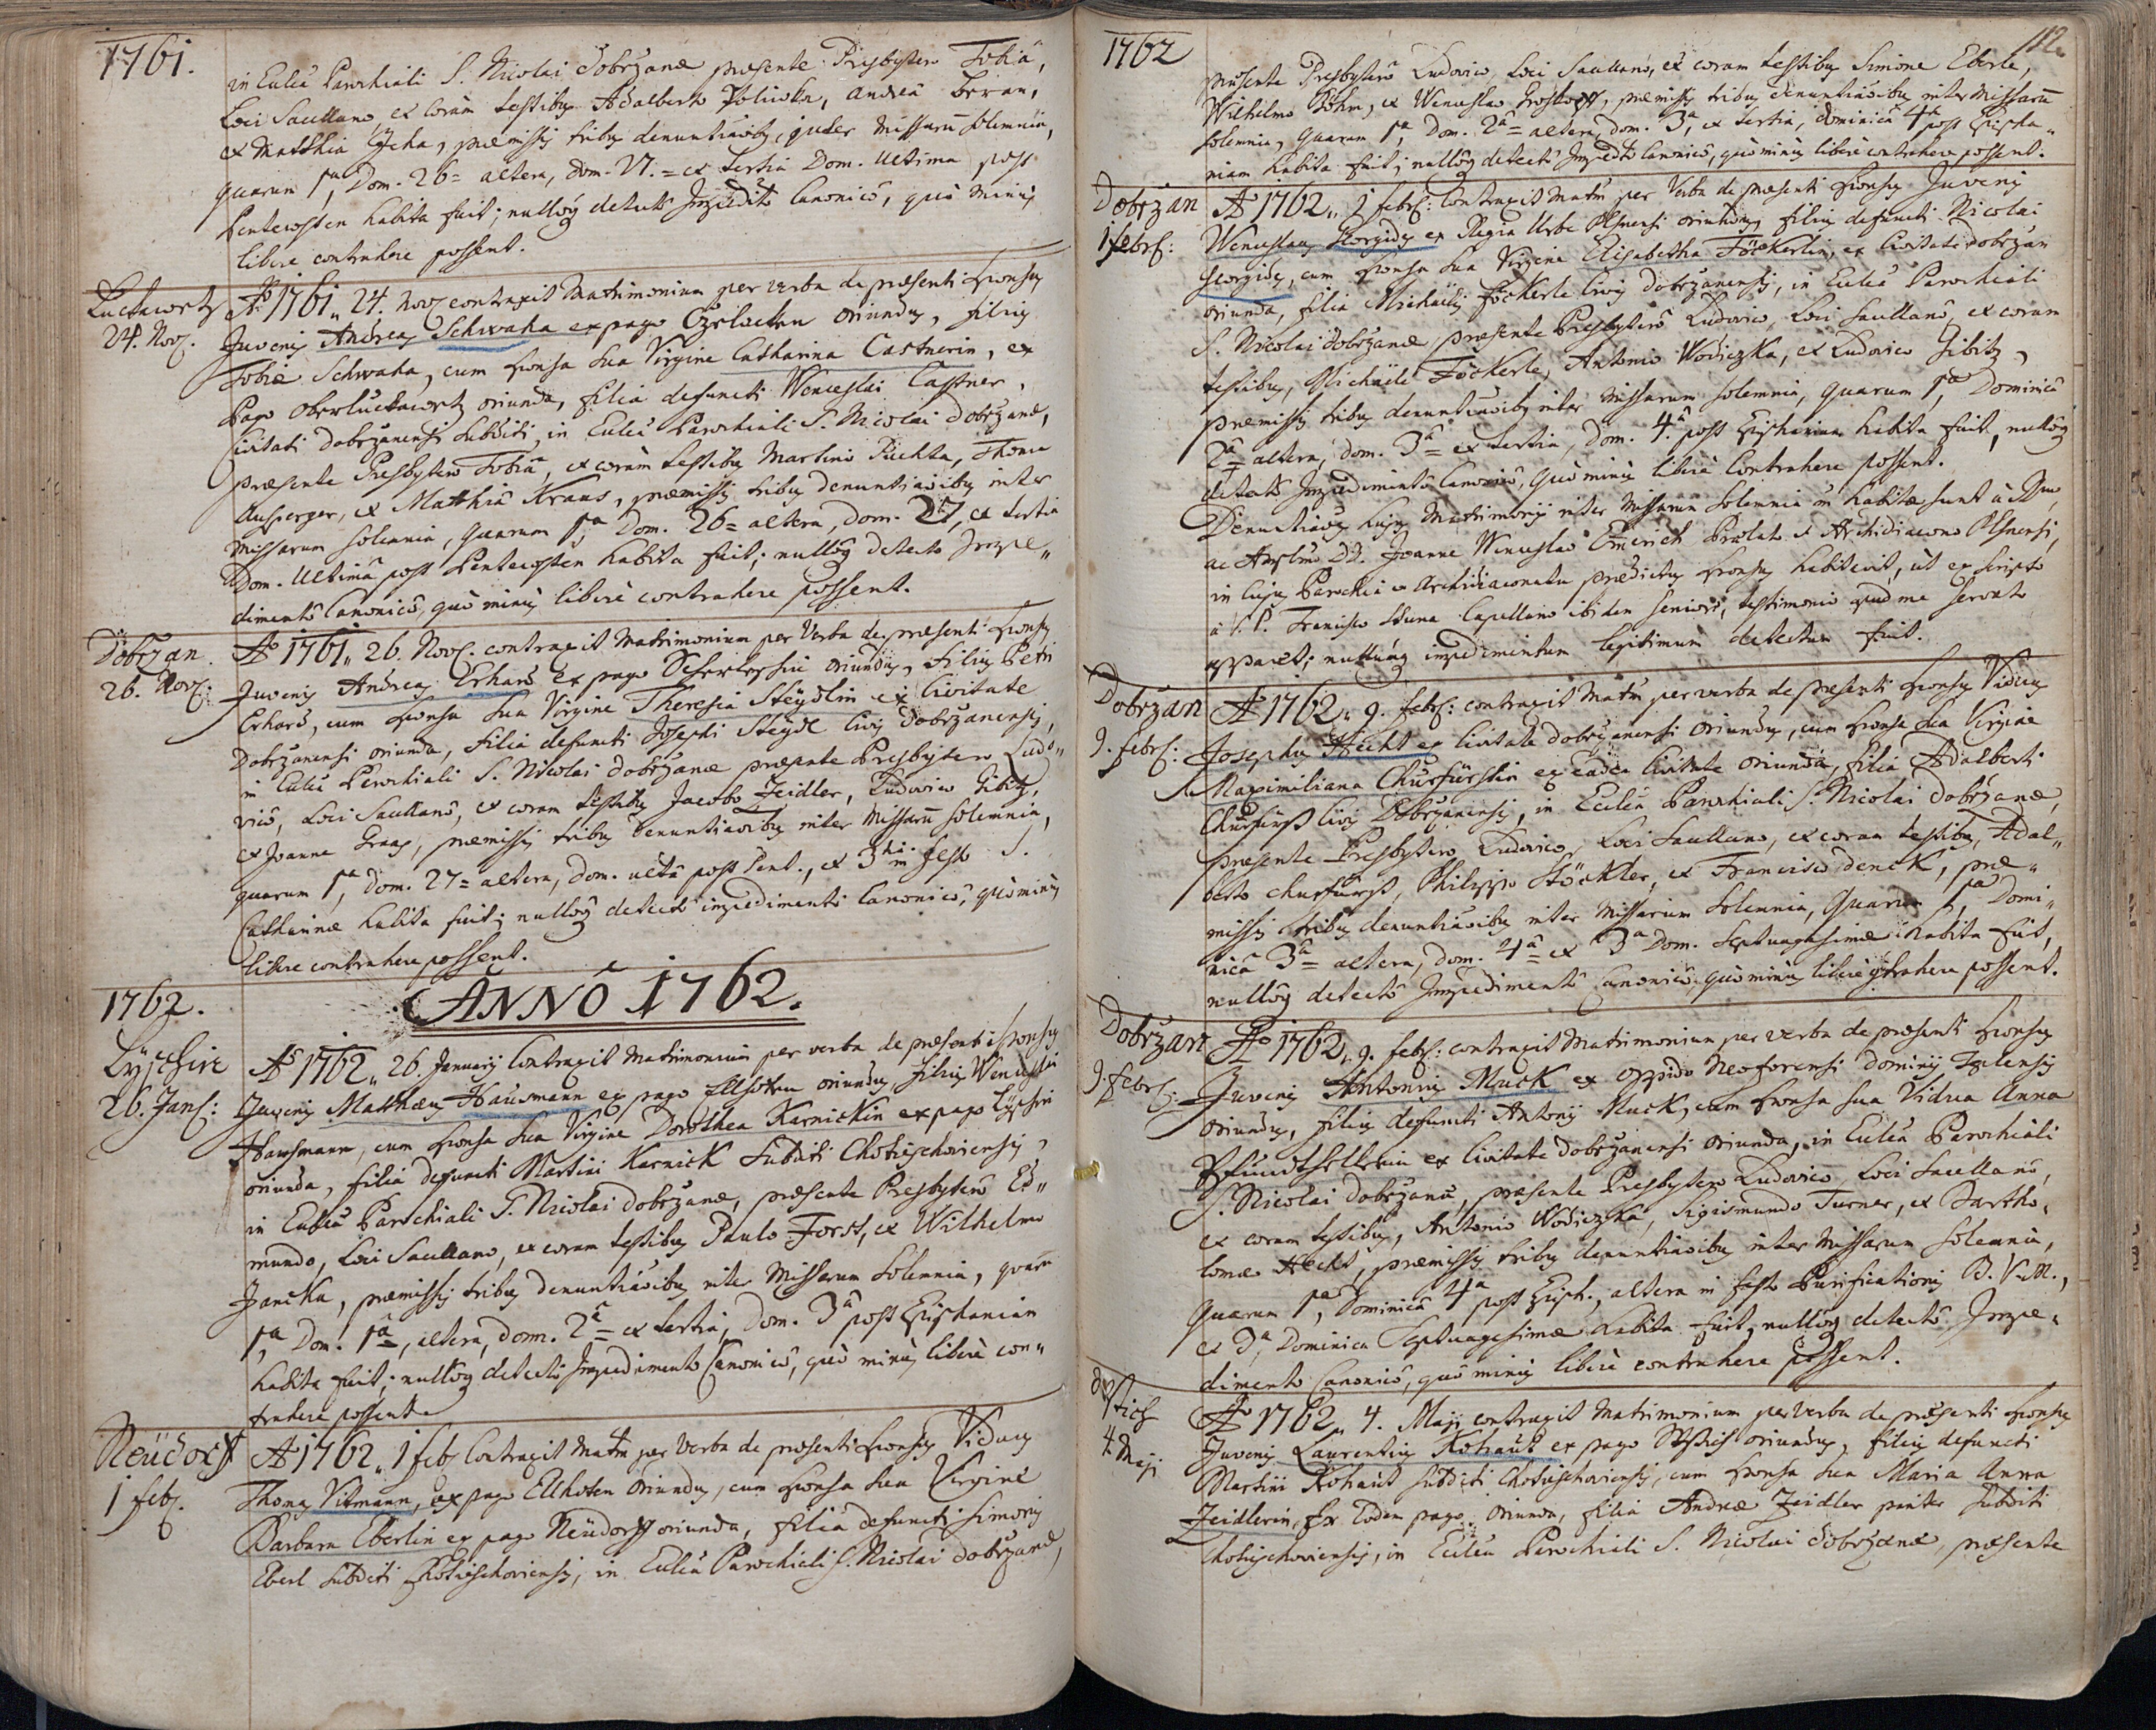 1761.
in Eccłiâ Parochiali S. Nicolai Dobržanæ præsente Presbytero Tobiâ,
Loci Sacellano, et coràm testibus Adalberto Poliwka, Andreâ Beran,
et Matthia, præmissis tribus denuntiãoibus, inter Missarũ solemnia,
quarum 1ª, Dom. 26= altera, dom. 27.= et tertia Dom. Ultima post
Pentecosten habita fuit; nullôq detecto Impedĩto Canonicô, quò minùs
libere contrahere possent.
Luckawetz
24. Nov.
Aº 1761„ 24. Nov contraxit Matrimonium per verba de præsenti sponsus
Juvenis Andreas Schwaha ex pago oriundus, filius
Tobiæ Schwaha, cum sponsa sua Virgine Catharina Castnerin, ex
Pago Oberluckawetz oriunda, filia defuncti Wenceslai Castner,
Civitati Dobržanensi subditi, in Eccłiâ Parochiali S. Nicolai Dobržanæ,
præsente Presbytero Tobiâ, et coràm testibus Martino Puchta, Thoma
Ansperger, et Matthiâ Kraus, præmissis tribus denuntiãoibus inter
Missarum solemnia, quarum 1ª, Dom. 26= altera, dom. 27, et tertia
Dom. Ultimâ post Pentecosten habita fuit; nullôq detecto Impe„
dimentô Canonicô, quò minùs liberè contrahere possent.
Dobržan.
26. Nov.
Aº 1761„ 26. Nov. contraxit Matrimonium per Verba de præsenti sponsus
Juvenis Andreas Erhard ex pago oriundus, filius Petri
Erhard, cum sponsa sua Virgine Theresia Steydlin ex Civitate
Dobržanensi oriunda, filia defuncti Josephi Steydl Civis Dobržanensis,
in Eccłiâ Parochiali S. Nicolai Dobržanæ præsente Presbytero Ludo„
vicô, Loci Sacellanô, et coram testibus Jacobo Zeidler, Ludovico Gibitz,
et Joanne Graas, præmissis tribus denuntiãoibus inter Missarũ solemnia,
quarum 1ª, dom. 27= altera, dom. ultâ post Pent., et 3tia in festo S.
Catharinæ habita fuit; nullôq detecto impedimentô Canonicô, quò minùs
libere contrahere possent.
1762.
ANNÔ 1762.
26. Jan:
Aº 1762„ 26. Januarij Contraxit Matrimonium per verba de præsenti sponsus
Juvenis Matthæus Hausmann ex pago Ellhotten oriundus, filius Wenceslai
Hausmann, cum sponsa sua Virgine Dorothea Karnickin ex pago
oriunda, filia defuncti Martini Karnick subditi Chotieschoviensis,
in Eccłiâ Parochiali S. Nicolai Dobržanæ, præsente Presbyterô Ed„
mundo, Loci Sacellano, et coram testibus Paulo Forst, et Wilhelmo
Jančka, præmissis tribus denuntiãoibus inter Missarum solemnia, quarũ
1ª Dom. 1ª, altera, dom. 2ª= et tertia, dom. 3ª post Epiphaniam
habita fuit; nullôq detectô Impedimentô Canonicô, quò minùs liberè con„
trahere possent.
Neüdorff
1 feb.
Aº 1762„ 1 feb Contraxit Matm per Verba de præsenti sponsus Viduus
Thomas Vitmann, ex pago Ellhoten oriundus, cum sponsa sua Virgine
Barbara Eberlin ex pago Neüdorff oriunda, filia defuncti Simonis
Eberl subditi Chotieschoviensis, in Eccłiâ Parochiali S. Nicolai Dobržanæ,
1762
112.
præsente Presbyterô Ludovico, Loci Sacellanô, et coram testibus Simone Eberle,
Wilhelmo Böhm, et Wenceslao, præmissis tribus denuntiãoibus inter Missarũ
solemnia, quarum 1ª, Dom. 2ª= altera, dom. 3ª, et tertia, dominicâ 4ª post Epipha„
niam habita fuit; nullôq detectô Impedĩto Canonicô, quò minùs liberè contrahere possent.
Dobržan
1 febr:
Aº 1762„ 1 febr: Contraxit Matm per Verba de præsenti sponsus Juvenis
Wenceslaus Georgides ex Regia Urbe Plsnensi oriundus, filius defuncti Nicolai
Georgides, cum sponsa sua Virgine Elisabetha Föckerlin, ex Civitate Dobržan
oriunda, filia Michaëlis Föckerle Civis Dobržanensis, in Eccłiâ Parochiali
S. Nicolai Dobržanæ præsente Presbyterô Ludovico, Loci Sacellanô, et coram
testibus, Michaële Föckerle, Antonio Wodiczka, et Ludovico Gibitz,
præmissis tribus denuntiãoibus inter Missarum solemnia, quarum 1ª, Dominicâ
2ª= altera, dom. 3ª= et tertia, dom. 4ª post Epiphaniam habita fuit, nullôq
detectô Impedimentô Canonicô, quò minùs liberè Contrahere possent.
Denuntiãoes hujus Matrimonij inter Missarum solemnia habitæ sunt à Rmo
ac Amplmo DD. Joanne Wenceslaô Emerich Prælato et Archidiacono Plsnensi,
in cujus Parochia et Archidiaconatu prædictus sponsus habitavit, ut ex scripto
à P. Francisco Capellano ibidem seniore, testimonio apud me servato
apparet; nullumq impedimentum legitimum detectum fuit.
Dobržan
9. febr:
Aº 1762„ 9. febr: contraxit Matm per verba de præsenti sponsus Viduus
Josephus Hecht ex Civitate Dobržanensi oriundus, cum sponsa sua Virgine
Maximiliana Churfürstin ex eâdem Civitate oriundâ, filia Adalberti
Churfürst Civis Dobržanensis, in Eccłiâ Parochiali S. Nicolai Dobržanæ,
præsente Presbytero Ludovico, Loci Sacellano, et coram testibus, Adal„
berto Churfürst, Philippo Stöckler, et Francisco Denck, præ„
missis tribus denuntiãoibus inter Missarum solemnia, Quarum 1ª, Domi„
nicâ 3ª= altera, dom. 4ª= et 3ª Dom. Septuagesimæ habita fuit,
nullôq detectô Impedimentô Canonicô, quò minùs liberè contrahere possent.
Dobržan
9. febr:
Aº 1762„ 9. febr: contraxit Matrimonium per verba de præsenti sponsus
Juvenis Antonius Muck ex oppido Neoforensi dominij
oriundus, filius defuncti Antonij Muck, cum sponsa sua Vidua Anna
ex Civitate Dobržanensi oriunda, in Eccłiâ Parochiali
S. Nicolai Dobržanæ, præsente Presbytero Ludovico, Loci Sacellanô,
et coram testibus, Antonio Wodiczka, Sigismundo Turner, et Bartho„
lomæo Hecht, præmissis tribus denuntiãoibus inter Missarum solemnia,
quarum 1ª, Dominicâ 4ª post Epiph., altera in festo Purificationis B. V. M.,
et 3ª, Dominica Septuagesimæ habita fuit, nullôq detectô Impe„
dimento Canonicô, quò minùs liberè contrahere possent.
4. Maji
Aº 1762„ 4. Maji contraxit Matrimonium per verba de præsenti sponsus
Juvenis Laurentius Kohaut ex pago oriundus, filius defuncti
Martini Kohaut subditi Chotieschoviensis, cum sponsa sua Maria Anna
Zeidlerin, Ex Eodem pago oriunda, filia Andreæ Zeidler pariter subditi
Chotieschoviensis, in Eccłiâ Parochiali S. Nicolai Dobržanæ, præsente